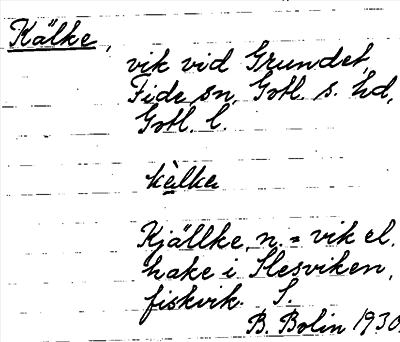 Kälke,
vik vid Grundet,
Fide sn, Gotl. s. hd,
Gotl. l.
kälke
Kjällke, n. = vik el.
hake i Slesviken,
fiskvik. S.
B. Bolin 1930.